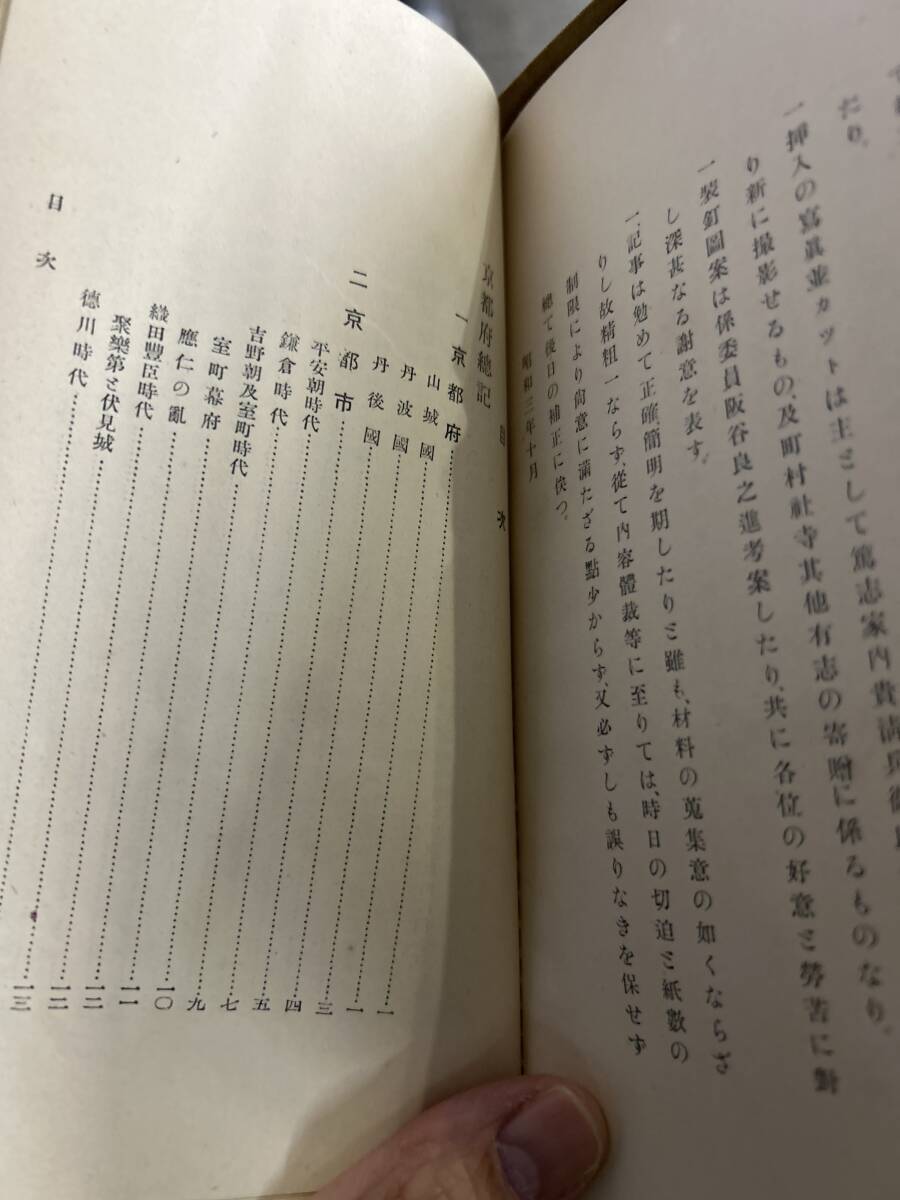 たり。
一 挿入の寫眞並カットは主として篤志家內貴淸兵衞
り新に撮影せるもの、及町村社寺其他有志の寄贈に係るものなり。
一 裝釘圖案は係委員阪谷良之進考案したり、共に各位の好意と勞苦に對
し深甚なる謝意を表す。
一、記事は勉めて正確、簡明を期したりと雖も、材料の蒐集意の如くならざ
りし故精粗一ならず、從て內容體裁等に至りては、時日の切迫と紙數の
制限により尙意に滿たざる點少からず、又必ずしも誤りなきを保せず
總て後日の補正に俟つ。
昭和三年十月
目次
京都府總記
一 京都府
山城國 一
丹波國 一
丹後國 三
二 京都市 四
平安朝時代 五
鎌倉時代 七
吉野朝及室町時代 九
室町幕府 一〇
應仁の亂 一一
織田豐臣時代 一二
聚樂第と伏見城 一二
德川時代 一三
目次